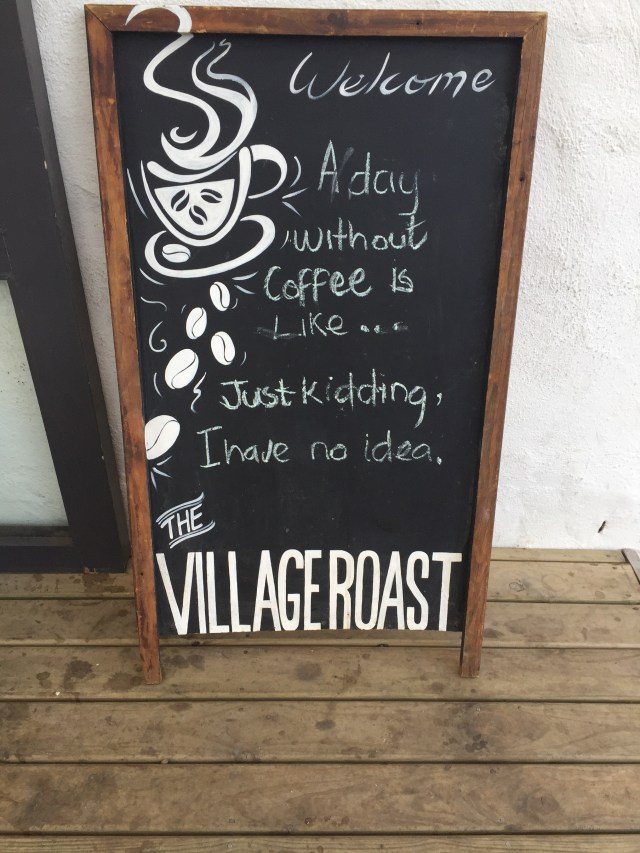 Welcome
A day
without
Coffee is
Like...
Just kidding,
I have no idea.
THE
VILLAGE ROAST